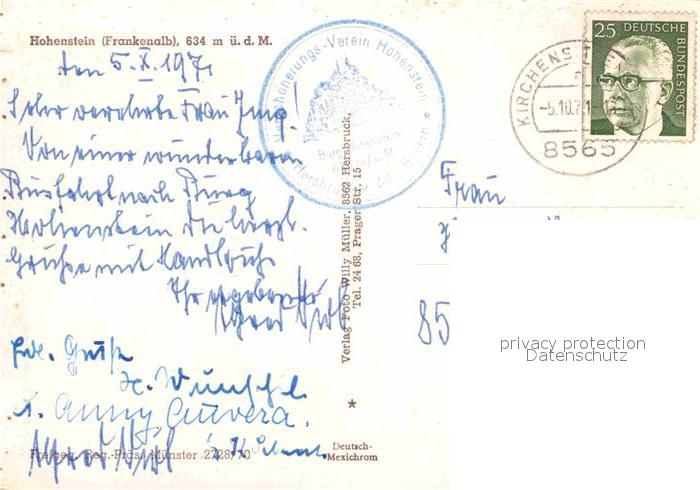 Hohenstein (Frankenalb), 634 m ü. d. M.
den 5. X. 1971
Sehr verehrte Frau Jung!
Von einer wunderbaren
Busfahrt nach Burg
Hohenstein die herzl.
Grüße mit Handkuß
Ihr ergebenster
frdl. Grüße
Anny
Freigeg. Reg.-Präs. Münster 2728/70
Deutsch-
Mexichrom
Verlag Foto Willy Müller, 8562 Hersbruck,
Tel. 24 68, Prager Str. 15
Verschönerungs-Verein Hohenstein
25 DEUTSCHE
BUNDESPOST
KIRCHENS
-5.10.71
8565
Frau
85
privacy protection
Datenschutz